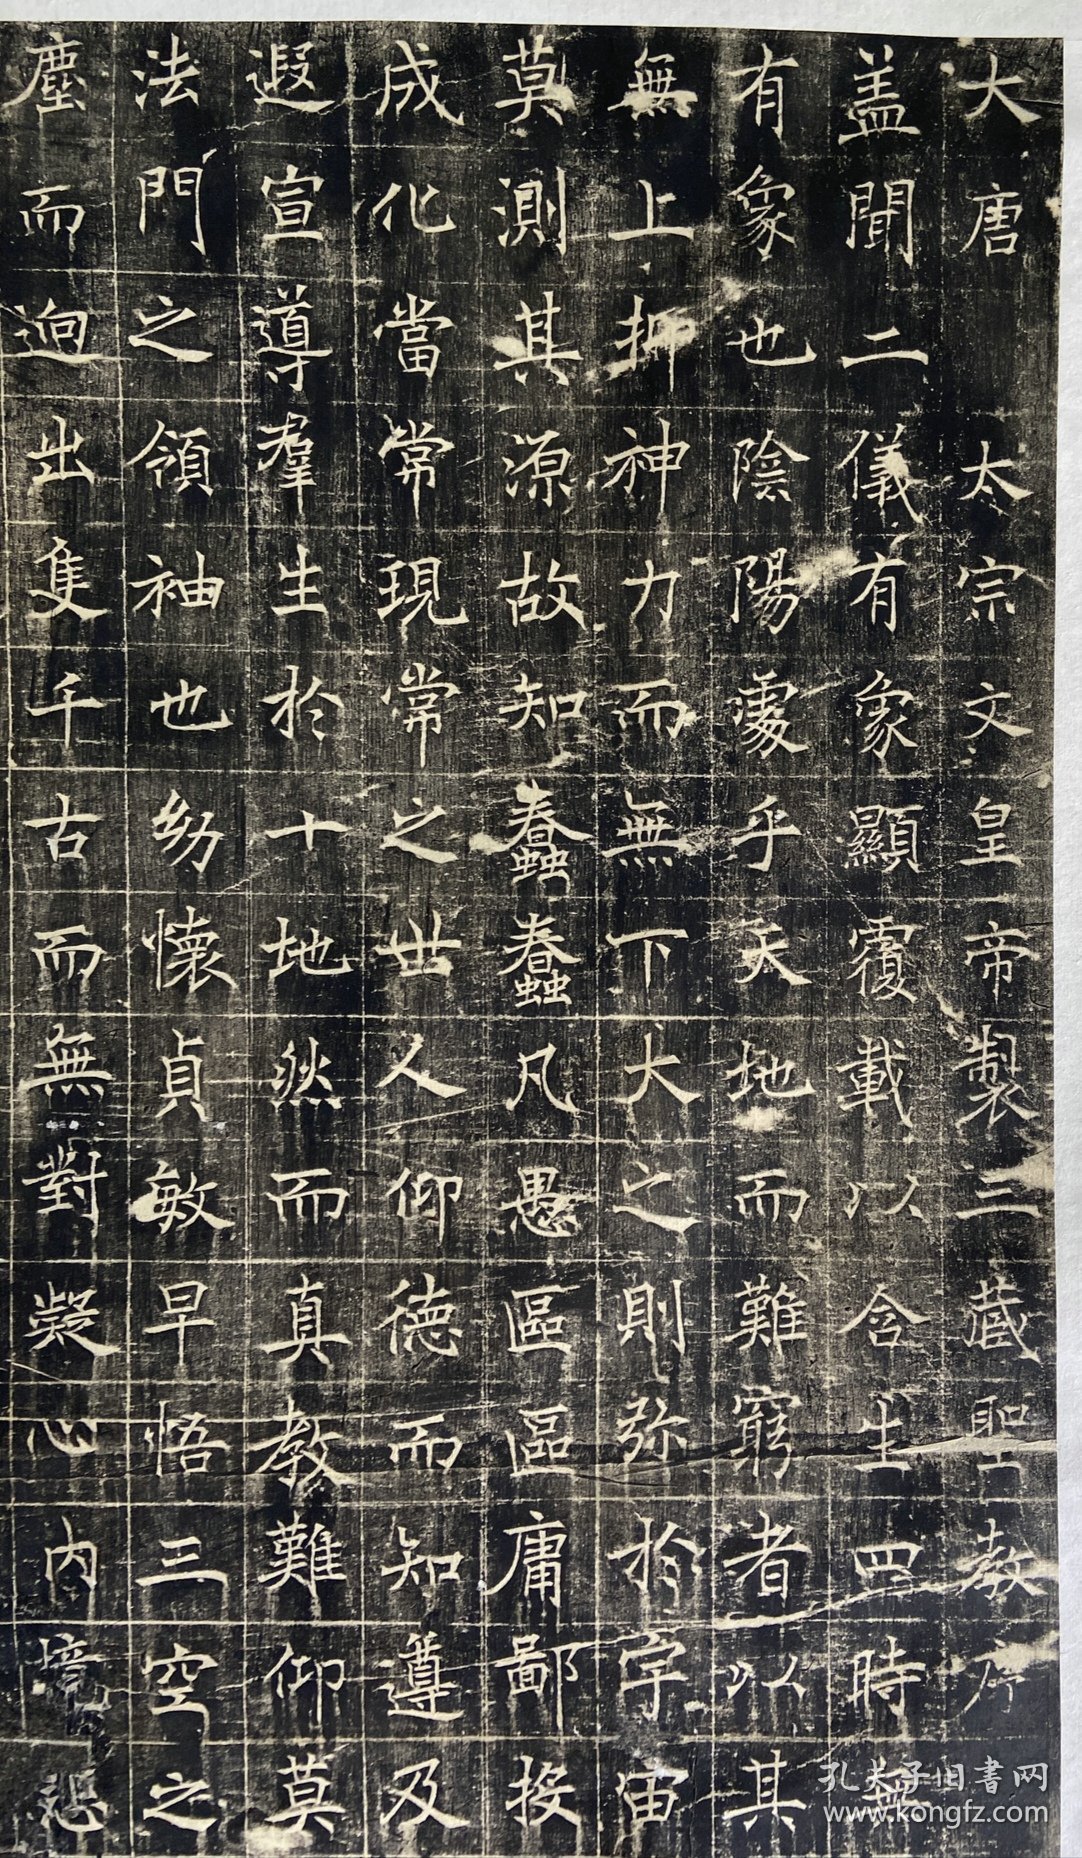 大唐太宗文皇帝製三藏聖教序
盖聞二儀有象顯覆載以含生四時無
有象也陰陽處乎天地而難窮者以其
無上抑神力而無下大之則弥於宇宙
莫測其源故知蠢蠢凡愚區區庸鄙投
成化當常現常之世人仰德而知遵及
遐宣導羣生於十地然而真教難仰莫
法門之領袖也幼懷貞敏早悟三空之
塵而迥出隻千古而無對凝心內境悲
孔夫子旧書网
www.kongfz.com